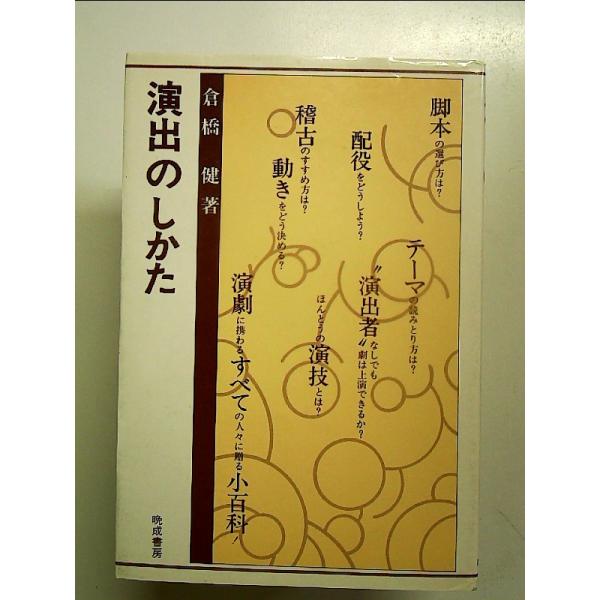 演出のしかた
倉橋 健 著
脚本の選び方は?
配役をどうしよう?
稽古のすすめ方は?
動きをどう決める?
テーマの読みとり方は?
"演出者"なしでも劇は上演できるか?
ほんとうの演技とは?
演劇に携わるすべての人々に贈る小百科!
晩成書房